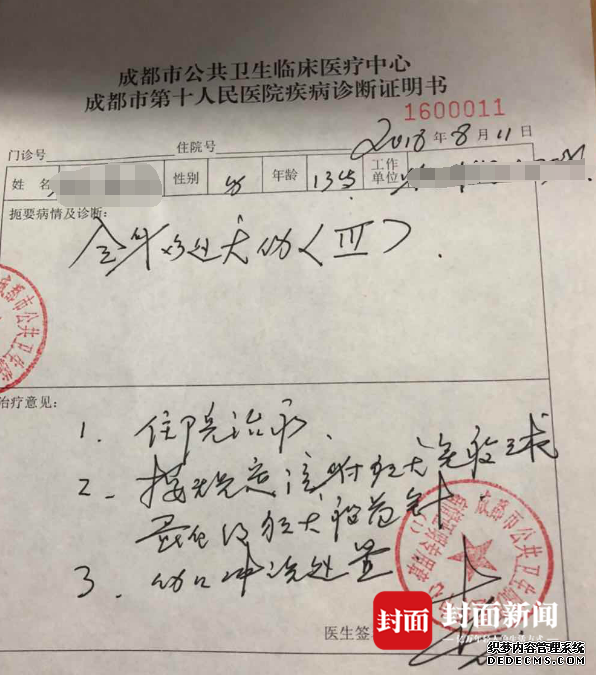 成都市公共卫生临床医疗中心
成都市第十人民医院疾病诊断证明书
1600011
门诊号 住院号 2018年8月11日
姓名 性别 女 年龄 13岁 工作单位
扼要病情及诊断:
全身多处犬伤〈III〉.
治疗意见:
1. 住院治疗、
2. 按规定注射狂犬免疫球
蛋白及狂犬病疫苗
3. 伤口冲洗处置
成都市公共卫生
医生签
封面 封面新闻
亿万年轻人的生活方式
织梦内容管理系统
DEDECMS.COM